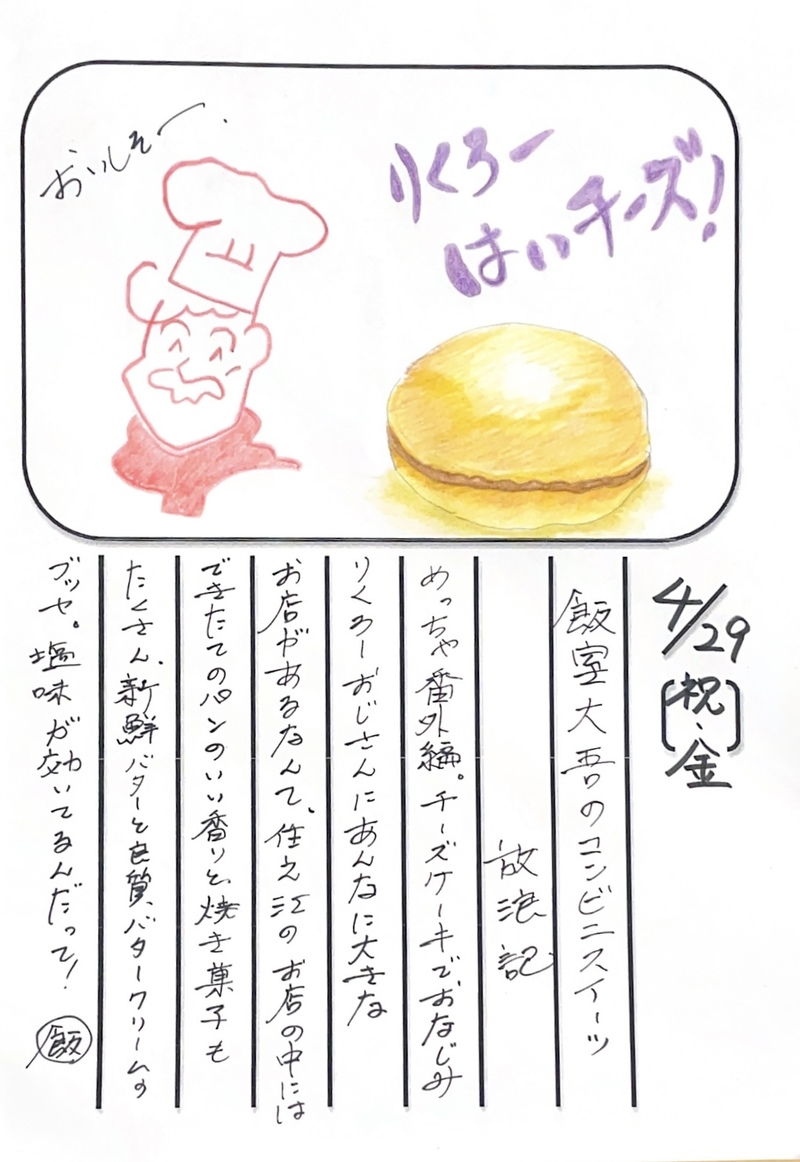 おいしそー。
りくろー
はいチーズ!
4/29
[祝・金]
飯室大吾のコンビニスイーツ
放浪記
めっちゃ番外編。チーズケーキでおなじみ
りくろーおじさんにあんなに大きな
お店があるなんて、住之江のお店の中には
できたてのパンのいい香りと、焼き菓子も
たくさん、新鮮バターと良質バタークリームの
ブッセ。塩味が効いてるんだって!
飯